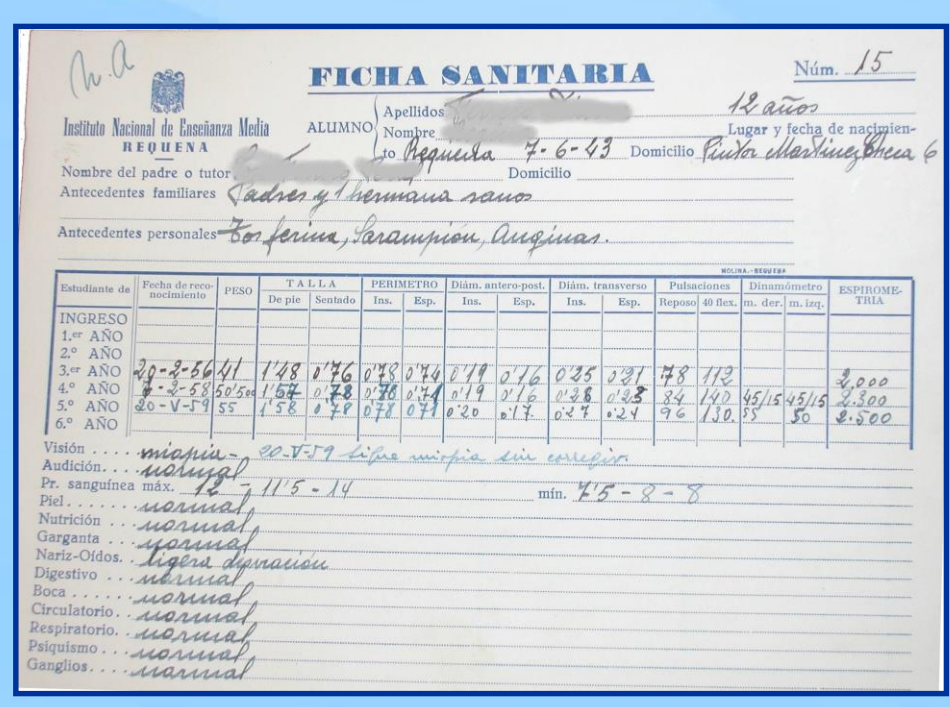 h.a
FICHA SANITARIA
Núm. 15
Instituto Nacional de Enseñanza Media
REQUENA
ALUMNO
Apellidos
12 años
Nombre
Lugar y fecha de nacimien-
to Requena 7-6-43 Domicilio Pintor Martinez Checa 6
Nombre del padre o tutor Domicilio
Antecedentes familiares Padres y 1 hermana sanos
Antecedentes personales Tos ferina, Sarampión, Anginas.
MOLINA.-REQUENA
Estudiante de Fecha de reco- PESO TALLA PERIMETRO Diám. antero-post. Diám. transverso Pulsaciones Dinamómetro ESPIROME-
nocimiento De pie Sentado Ins. Esp. Ins. Esp. Ins. Esp. Reposo 40 flex. m. der. m. izq. TRIA
INGRESO
1.er AÑO
2.º AÑO
3.er AÑO 20-2-56 41 1'48 0'76 0'78 0'74 0'19 0'16 0'25 0'21 78 112 2,000
4.º AÑO 7-2-58 50'500 1'57 0,78 0'78 0'71 0'19 0'16 0'28 0'23 84 140 45/15 45/15 2.300
5.º AÑO 20-V-59 55 1'58 0'78 078 071 0'20 0'17. 0'27 0'24 96 130. 55 50 2.500
6.º AÑO
Visión ..... miopia - 20-V-59 Sigue miopia sin corregir.
Audición.... normal
Pr. sanguínea máx. 12 - 11'5 - 14 mín. 7'5 - 8 - 8
Piel....... normal
Nutrición ... normal
Garganta ... normal
Nariz-Oídos.. ligera desviación
Digestivo ... normal
Boca ..... normal
Circulatorio.. normal
Respiratorio.. normal
Psiquismo ... normal
Ganglios.... normal